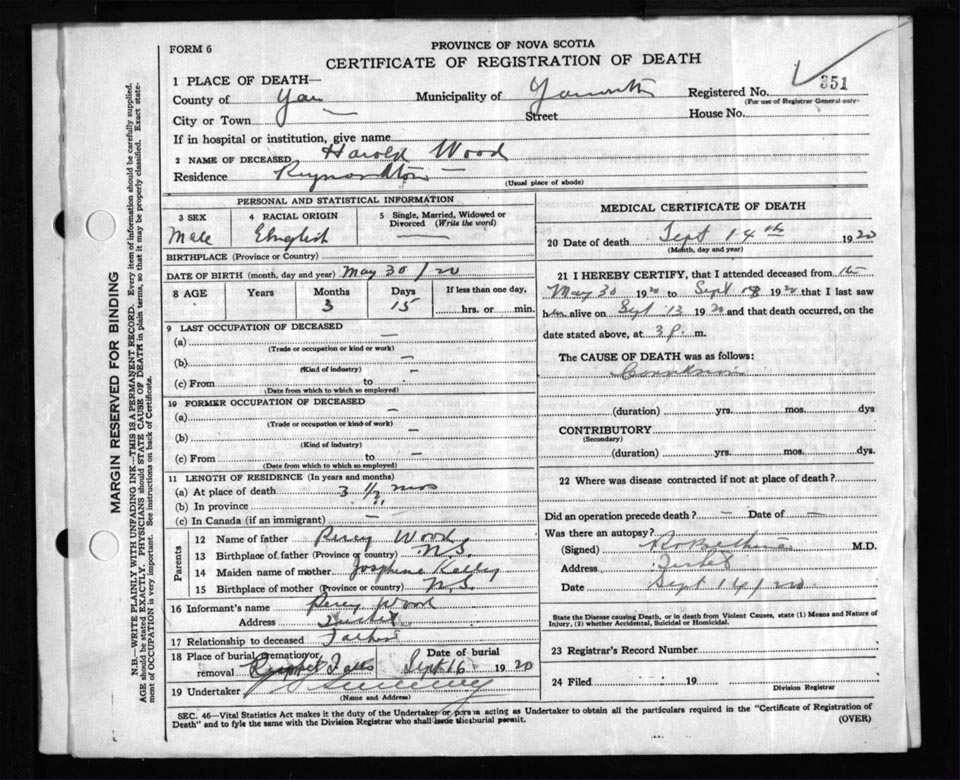 FORM 6
PROVINCE OF NOVA SCOTIA
CERTIFICATE OF REGISTRATION OF DEATH
351
1 PLACE OF DEATH—
County of Yar Municipality of Yarmouth Registered No.
(For use of Registrar General only)
City or Town Street House No.
If in hospital or institution, give name
2 NAME OF DECEASED Harold Wood
Residence
(Usual place of abode)
PERSONAL AND STATISTICAL INFORMATION
3 SEX 4 RACIAL ORIGIN 5 Single, Married, Widowed or Divorced (Write the word)
Male English —
BIRTHPLACE (Province or Country)
DATE OF BIRTH (month, day and year) May 30/20
8 AGE Years Months Days If less than one day,
3 15 hrs. or min.
9 LAST OCCUPATION OF DECEASED
(a) —
(Trade or occupation or kind or work)
(b) —
(Kind of industry)
(c) From to —
(Date from which to which so employed)
10 FORMER OCCUPATION OF DECEASED
(a) —
(Trade or occupation or kind of work)
(b) —
(Kind of industry)
(c) From to —
(Date from which to which so employed)
11 LENGTH OF RESIDENCE (In years and months)
(a) At place of death 3 1/2 mos
(b) In province "
(c) In Canada (if an immigrant) —
Parents
12 Name of father Percy Wood
13 Birthplace of father (Province or country) N.S.
14 Maiden name of mother Josphine Kelley
15 Birthplace of mother (Province or country) N.S.
16 Informant's name Percy Wood
Address Tusket
17 Relationship to deceased Father
18 Place of burial, cremation or removal Falls Date of burial Sept 16 1920
19 Undertaker
(Name and Address)
MEDICAL CERTIFICATE OF DEATH
20 Date of death Sept 14th 1920
(Month, day and year)
21 I HEREBY CERTIFY, that I attended deceased from
May 30 1920 to Sept 1920 that I last saw
him alive on Sept 13 1920 and that death occurred, on the
date stated above, at 3 p. m.
The CAUSE OF DEATH was as follows:
Convulsions
(duration) yrs. mos. dys
CONTRIBUTORY
(Secondary)
(duration) yrs. mos. dys.
22 Where was disease contracted if not at place of death?
Did an operation precede death? — Date of —
Was there an autopsy?
(Signed) M.D.
Address Tusket
Date Sept 14/20
State the Disease causing Death, or in death from Violent Causes, state (1) Means and Nature of
Injury, (2) whether Accidental, Suicidal or Homicidal.
23 Registrar's Record Number
24 Filed 19
Division Registrar
SEC. 46—Vital Statistics Act makes it the duty of the Undertaker or person acting as Undertaker to obtain all the particulars required in the "Certificate of Registration of
Death" and to fyle the same with the Division Registrar who shall issue the burial permit.
(OVER)
MARGIN RESERVED FOR BINDING
N.B.—WRITE PLAINLY WITH UNFADING INK—THIS IS A PERMANENT RECORD. Every item of information should be carefully supplied.
AGE should be stated EXACTLY. PHYSICIANS should STATE CAUSE OF DEATH in plain terms, so that it may be properly classified. Exact state-
ment of OCCUPATION is very important. See instructions on back of Certificate.